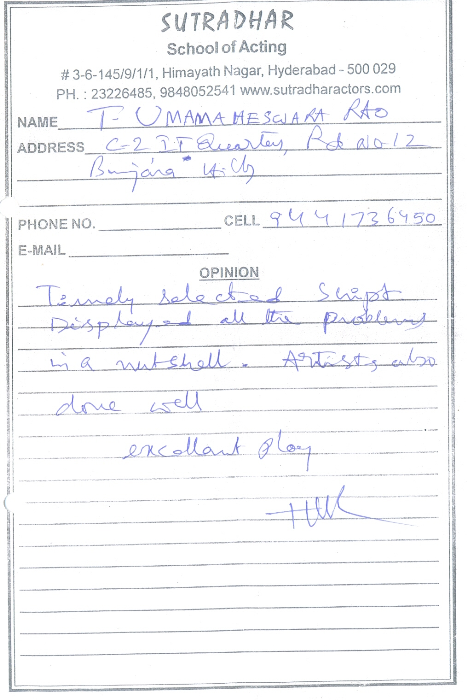 SUTRADHAR
School of Acting
# 3-6-145/9/1/1, Himayath Nagar, Hyderabad - 500 029
PH. : 23226485, 9848052541 www.sutradharactors.com
NAME T- UMAMAHESWARA RAO
ADDRESS C-2 I.T Quarters, Rd No-12
Banjara Hills
PHONE NO. CELL 9441736450
E-MAIL
OPINION
Timely selected Script
Displayed all the problems
in a nutshell. Artists also
done well
excellant play